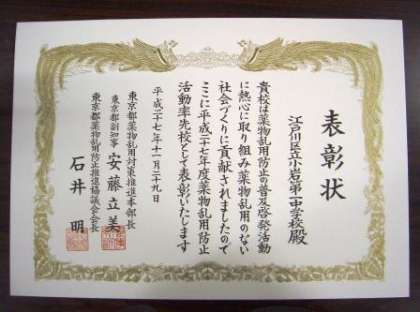 表彰状
江戸川区立小岩第一中学校殿
貴校は薬物乱用防止の普及啓発活動
に熱心に取り組み薬物乱用のない
社会づくりに貢献されましたので
ここに平成二十七年度薬物乱用防止
活動率先校として表彰いたします
平成二十七年十一月二十九日
東京都薬物乱用対策推進本部長
東京都副知事 安藤立美
東京都薬物乱用防止推進協議会会長
石井明